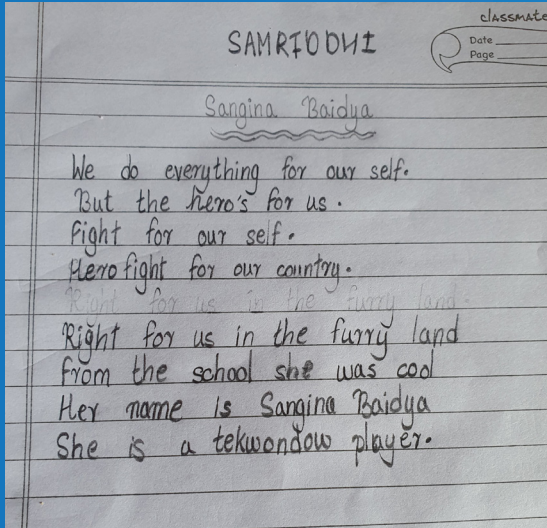 classmate
Date
Page
SAMRIDDHI
Sangina Baidya
We do everything for our self.
But the hero's for us.
Fight for our self.
Hero fight for our country.
Right for us in the furry land.
Right for us in the furry land
from the school she was cool
Her name is Sangina Baidya
She is a tekwondow player.